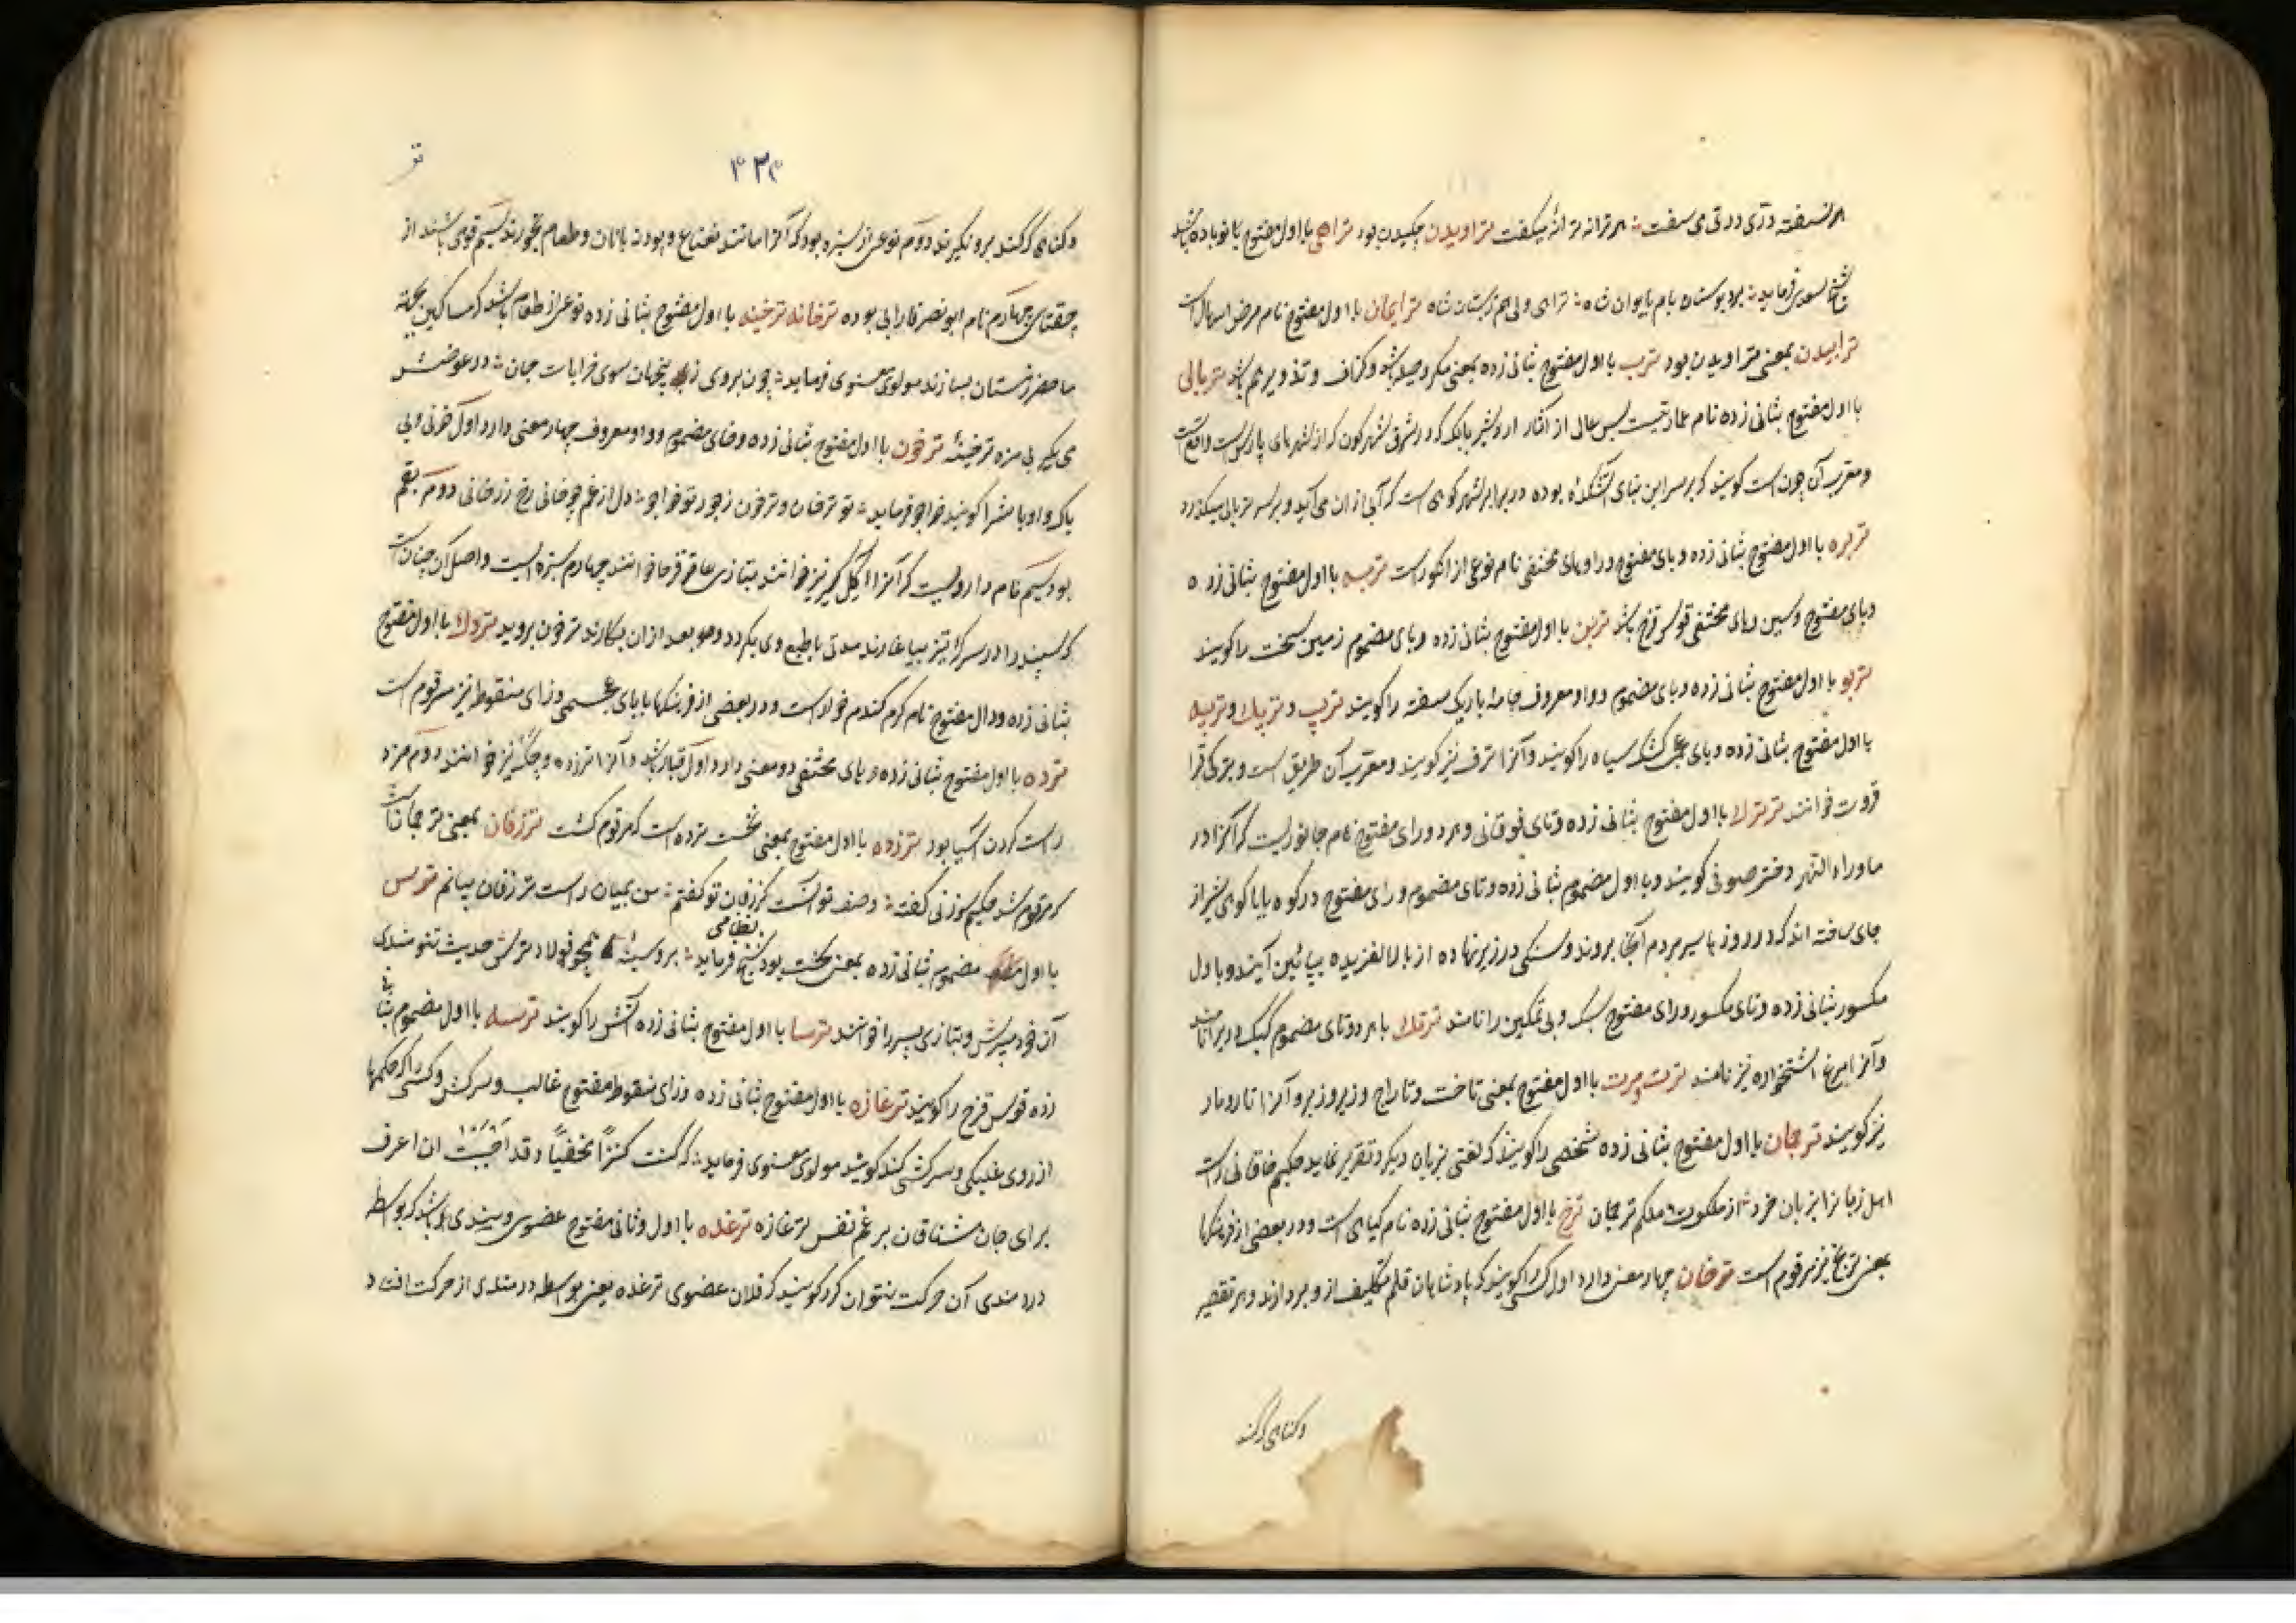 هر نسفته دری دری می سفت هر ترانه ترانهٔ میکفت تراویدن چکیدن بود تراهی با اول مفتوح
فرماید ترابیدن
ترابیدن بمعنی تراویدن بود ترب با اول مفتوح بثانی زده بمعنی مکر و حیله باشد و کزاف و تذویر هم باشد تربالی
با اول مفتوح بثانی زده نام عمارتیست بس عالی از آثار اردشیر بابک که در مشرقی شهر کون که از شهرهای پارس است واقع است
و معرب آن جون است کویند که بر سر این بنای آتشکده بوده در برابر شهر کوهی است که آبی از ان می آید و بر سر تربالی میکذرد
تربره با اول مفتوح بثانی زده و بای مفتوح و را و های مختفی نام نوعی از انکور است تربسه با اول مفتوح بثانی زده
و بای مفتوح و سین و های مختفی قوس قزح باشد تربن با اول مفتوح بثانی زده و بای مضموم زمین سخت را کویند
تربو با اول مفتوح بثانی زده و بای مضموم و واو معروف جامهٔ باریک سفته را کویند ترپ و ترپک و ترپیه
با اول مفتوح بثانی زده و بای عجمی کشک سیاه را کویند و آنرا ترف نیز کویند و معرب آن طریق است و بترکی قرا
قروت خوانند ترترک با اول مفتوح بثانی زده و تای فوقانی و هر دو رای مفتوح نام جانوریست که آنرا در
ماوراءالنهر دختر صوفی کویند و با اول مضموم بثانی زده و تای مضموم و رای مفتوح در کوه بابا کوهی شیراز
جای ساخته اند که در روزها سیر مردم آنجا بروند و سنکی در زیر نهاده از بالا لغزیده بپائین آیند و با اول
مکسور بثانی زده و تای مکسور و رای مفتوح سبک و بی تمکین را نامند ترتک با هر دو تای مضموم کبک
و آنرا مرغ استخواره نیز نامند ترت مرت با اول مفتوح بمعنی تاخت و تاراج و زیر و زبر و آنرا تارومار
نیز کویند ترجمان با اول مفتوح بثانی زده شخصی را کویند که لغتی بزبان دیکر تقریر نماید حکیم خاقانی راست
اهل زبانرا بزبان خرد از ملکوت و ملکم ترجمان ترخ با اول مفتوح بثانی زده نام کیاهی است و در بعضی از فرهنکها
بمعنی ترنج نیز مرقوم است ترخان چهار معنی دارد اول کسی را کویند که پادشاهان قلم تکلیف از و بردارند و هر تقصیر
و کناهی که کند
۴۳۴
تو
و کناهی که کند برو نکیرند دوم نوعی از سبزه بود که آنرا مانند نعناع و پودنه با نان و طعام بخورند سیم قومی باشند از
چغتای چهارم نام ابونصر فارابی بوده ترخانه ترخینه با اول مفتوح بثانی زده نوعی از طعام باشد که مساکین بجهة
ماحضر زمستان بسازند مولوی معنوی فرماید چون بروی زین جهان سوی خرابات جان در عوض
می بکیر بی مزه ترخینهٔ ترخون با اول مفتوح بثانی زده و خای مضموم و واو معروف چهار معنی دارد اول خونی و بی
باک و اوباش را کویند خواجو فرماید تو ترخان و ترخون ز جور تو خواجو دل از غم چو خانی رخ زرخانی دوم بقم
بود سیم نام داروییست که آنرا اکیل کیر نیز خوانند بتازی عاقرقرحا خوانند چهارم سبزه ایست و اصل آن چنان است
که سپند را در سرکهٔ تیز بیاغارند مدتی تا طبع وی بکردد و بعد از ان بکارند ترخون بروید تردک با اول مفتوح
بثانی زده و دال مفتوح نام کرم کندم خوار است و در بعضی از فرهنکها با بای عجمی و زای منقوط نیز مرقوم است
ترده با اول مفتوح بثانی زده و های مختفی دو معنی دارد اول قباله باشد و آنرا ترزده و چک نیز خوانند دوم مزد
راست کردن آسیا بود ترزده با اول مفتوح بمعنی نخست ترده است که مرقوم کشت ترزفان بمعنی ترجمان است
که مرقوم شد حکیم سوزنی کفته وصف تو آنست کز زفان تو کفتم من بمیان راست ترزفان بیانم ترس
با اول مضموم بثانی زده بمعنی سخت بود شیخ نظامی فرماید بر و سینهٔ همچو فولاد ترس حدیث تنومندی
آن خود مپرس و بتازی سپر را خوانند ترسا با اول مفتوح بثانی زده آتش پرست را کویند ترسه با اول مضموم بثانی
زده قوس قزح را کویند ترغازه با اول مفتوح بثانی زده و زای منقوط مفتوح غالب و سرکش و کسی را که حکمها
از روی غلبکی و سرکشی کند کویند مولوی معنوی فرماید که کنت کنزاً مخفیاً و قد احببت ان اعرف
برای جان مشتاقان بر غم نفس ترغازه ترغده با اول و ثانی مفتوح عضوی و بندی باشد که بواسطهٔ
دردمندی آن حرکت نتوان کرد کویند که فلان عضوی ترغده یعنی بواسطه دردمندی از حرکت افتاد